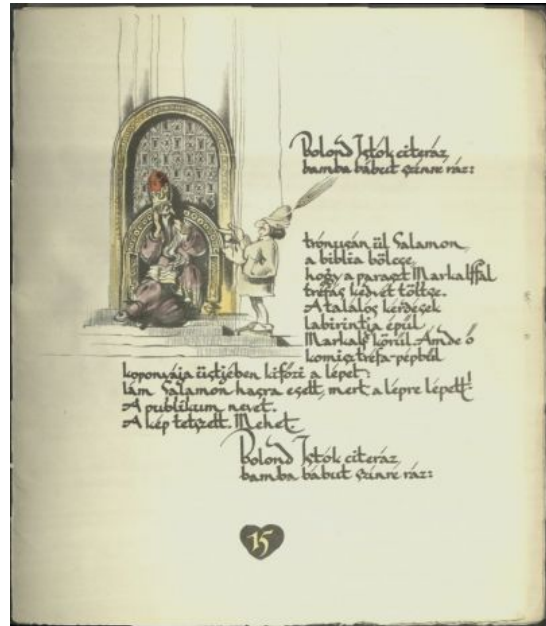 Bolond Istók citeráz,
bamba bábut színre ráz:
trónusán ül Salamon,
a biblia bölcse,
hogy a paraszt Markalffal
tréfás kedvét töltse.
A találós kérdések
labirintja épül
Markalf körül. Ámde ő
komisz tréfa-pépből
koponyája üstjében kifőzi a lépet:
lám Salamon hasra esett, mert a lépre lépett!
A publikum nevet.
A kép tetszett. Mehet.
Bolond Istók citeráz,
bamba bábut színre ráz:
15